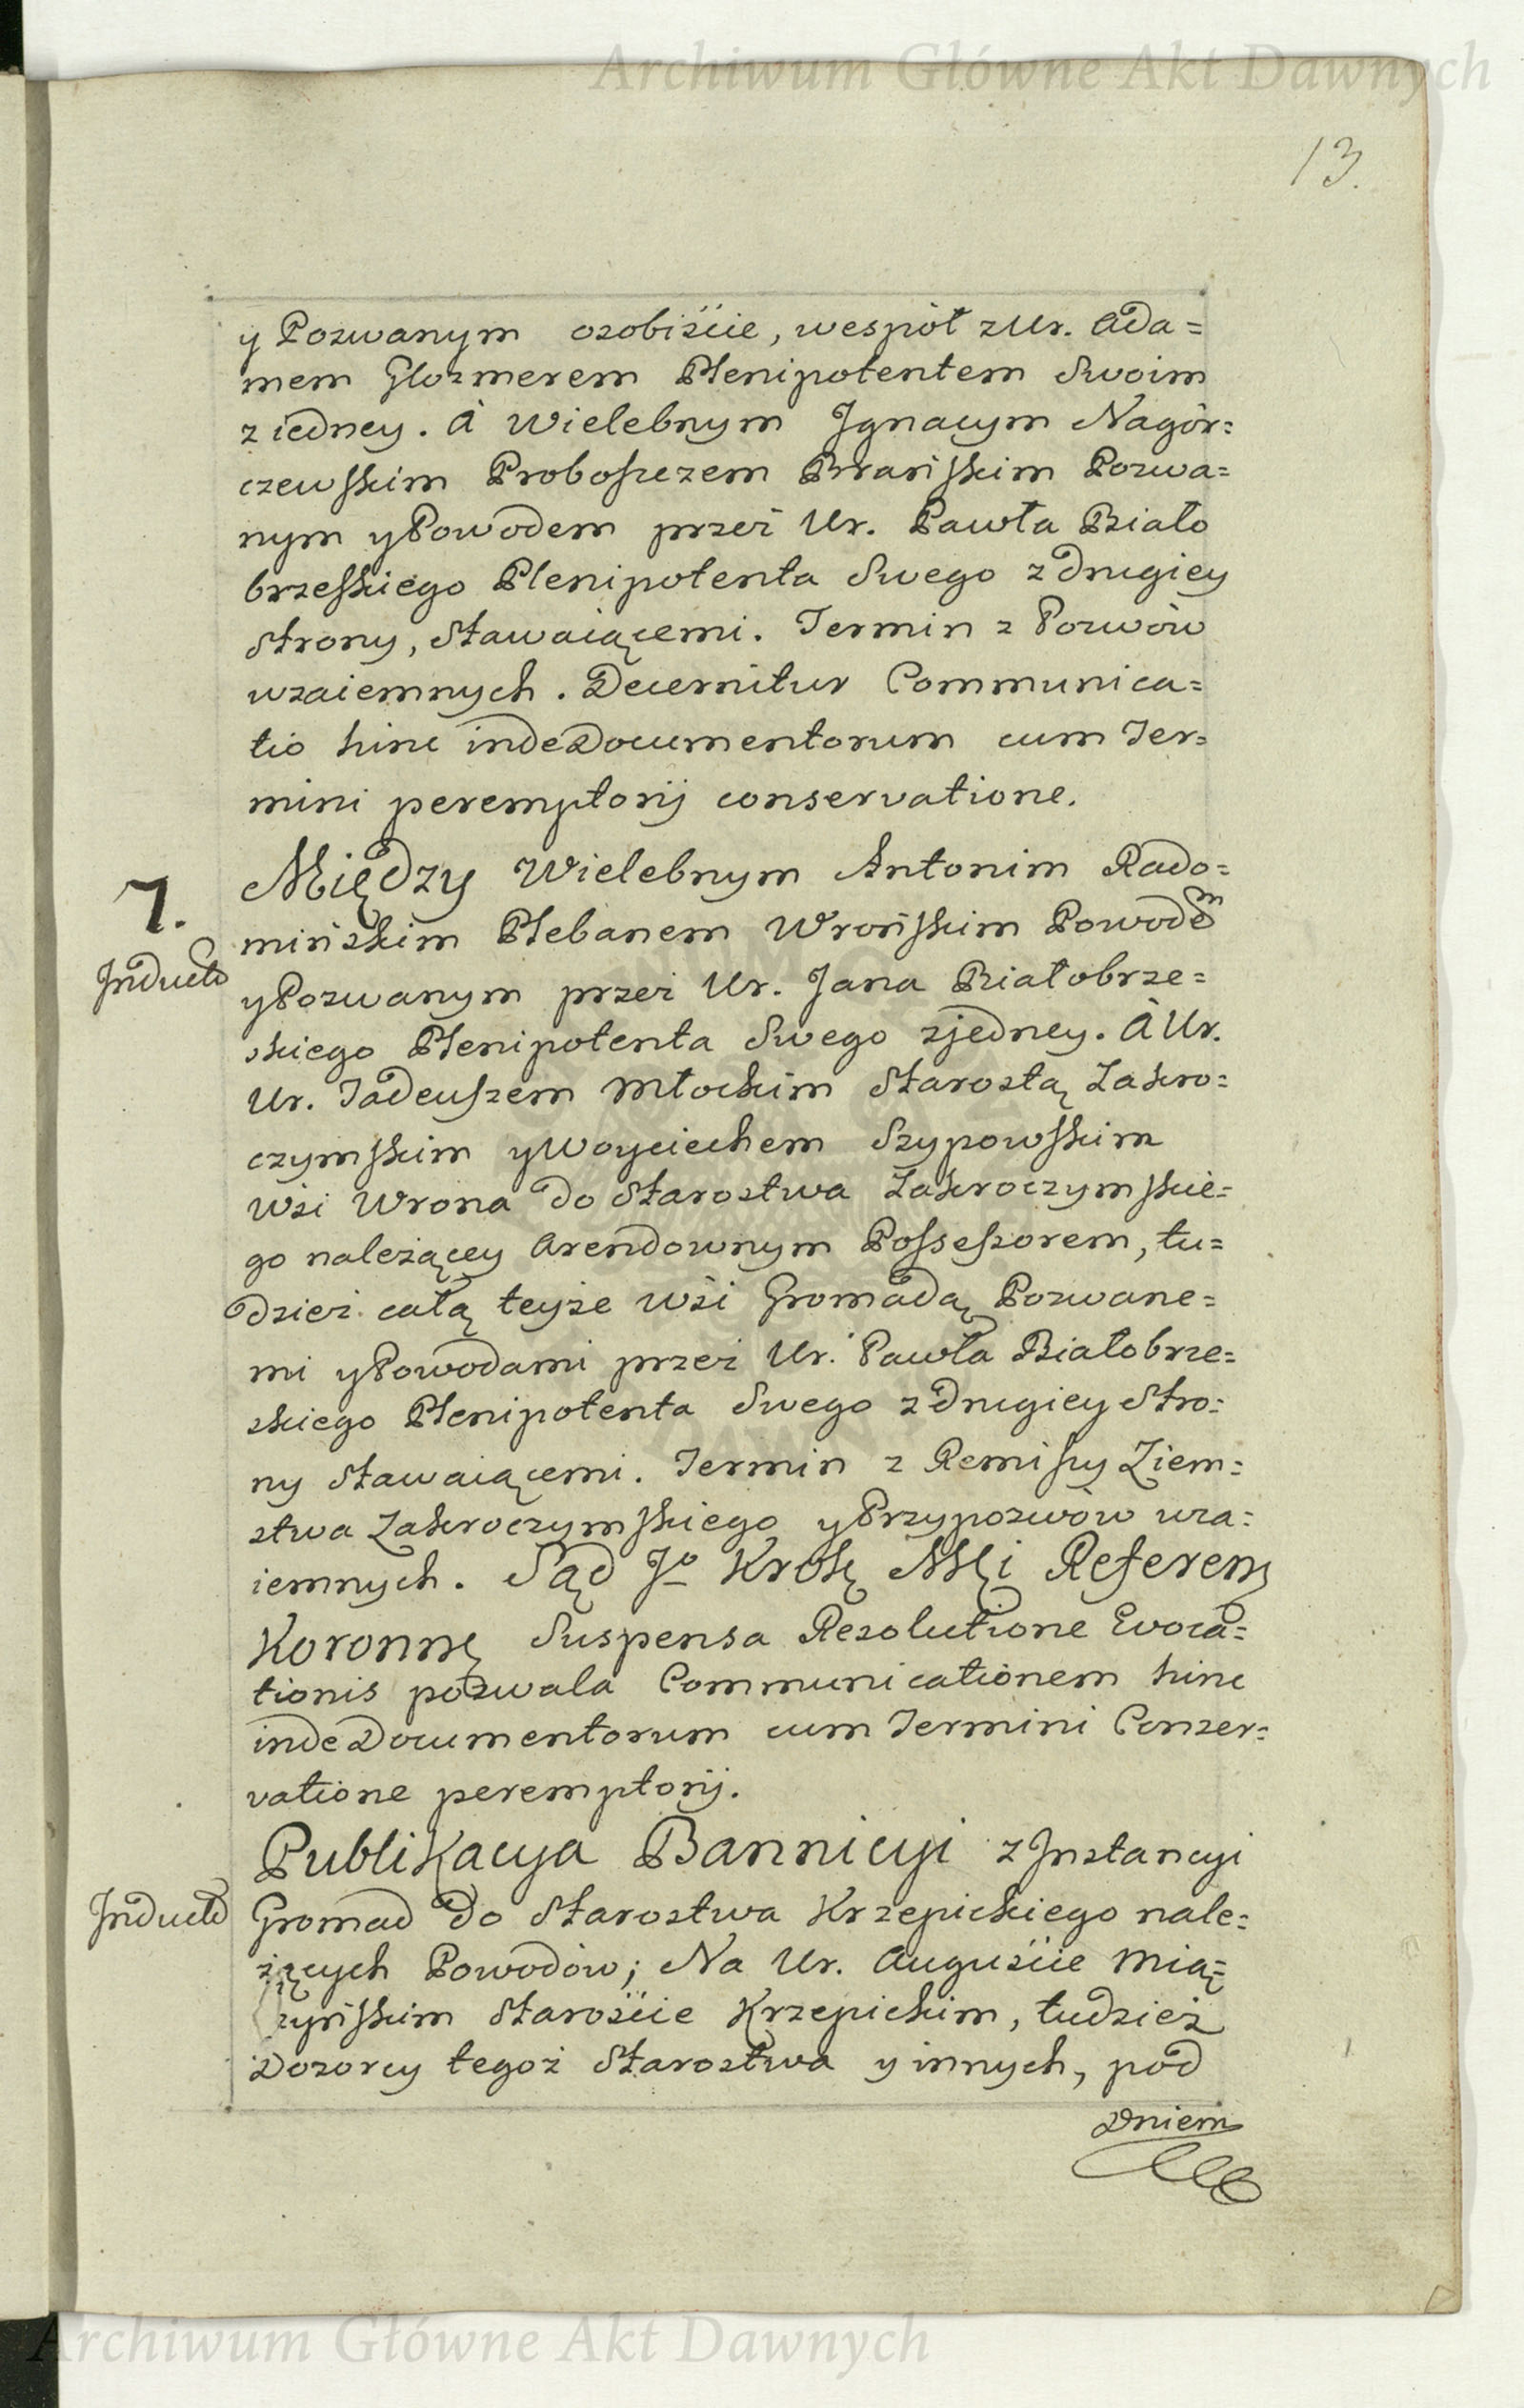 Archiwum Główne Akt Dawnych
13.
y Pozwanym osobiście, wespół z Ur. Ada=
mem Glozmerem Plenipotentem Swoim
z iedney. À Wielebnym Jgnacym Nagór=
czewskim Proboszczem Brańskim Pozwa=
nym y Powodem przez Ur. Pawła Biało
brzeskiego Plenipotenta Swego z drugiey
Strony, Stawaiącemi. Termin z Pozwów
wzaiemnych. Decernitur Communica=
tio hinc inde Documentorum cum Ter=
mini peremptorij conservatione.
7. Między Wielebnym Antonim Rado=
mińskim Plebanem Wrońskim Powodem
Inducta
y Pozwanym przez Ur. Jana Białobrze=
skiego Plenipotenta Swego z jedney. À Ur.
Ur. Tadeuszem Młockim Starostą Zakro=
czymskim y Woyciechem Szypowskim
Wsi Wrona do Starostwa Zakroczymskie=
go należącey Arendownym Possessorem, tu=
dzież całą teyże Wsi Gromadą Pozwane=
mi y Powodami przez Ur. Pawła Białobrze=
skiego Plenipotenta Swego z drugiey Stro=
ny Stawaiącemi. Termin z Remissy Ziem=
stwa Zakroczymskiego y Przypozwów wza=
iemnych. Sąd Jo Krolę Mści Referen
Koronny Suspensa Resolutione Evoca=
tionis pozwala Communicationem hinc
inde Documentorum cum Termini Conser=
vatione peremptorij.
Publikacya Bannicyi z Jnstancyi
Inducta Gromad do Starostwa Krzepickiego nale=
żących Powodów; Na Ur. Auguście Mią=
czyńskim Staroście Krzepickim, tudzież
Dozorcy tegoż Starostwa y innych, pod
Dniem
Archiwum Główne Akt Dawnych